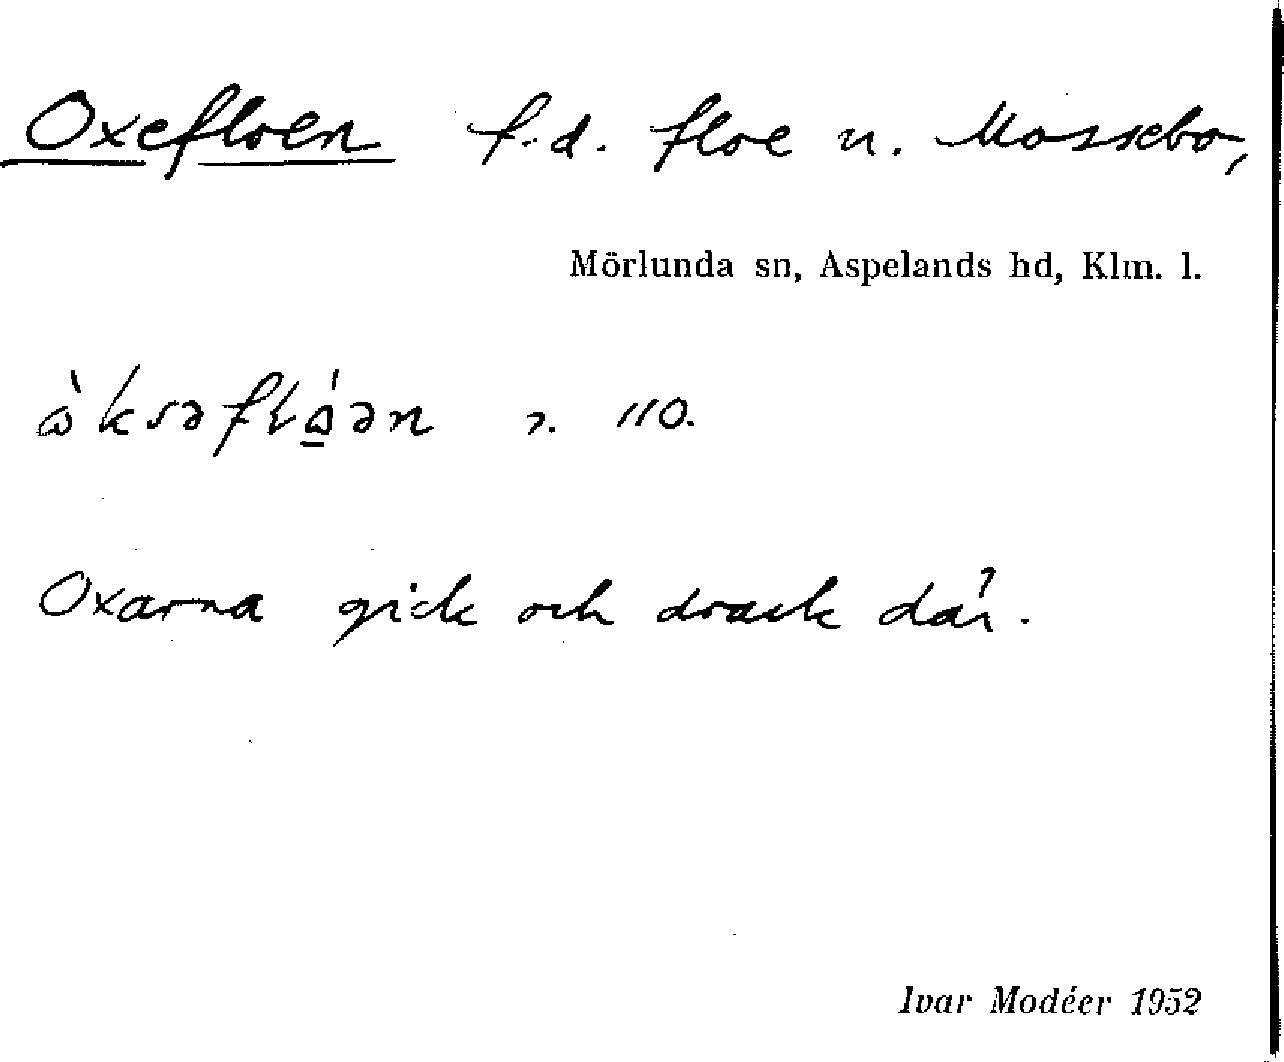 Oxefloen f.d. floe n. Mossebo,
Mörlunda sn, Aspelands hd, Klm. l.
ɷ̀ksəflɷ́ən 2. 110.
Oxarna gick och drack där.
Ivar Modéer 1952